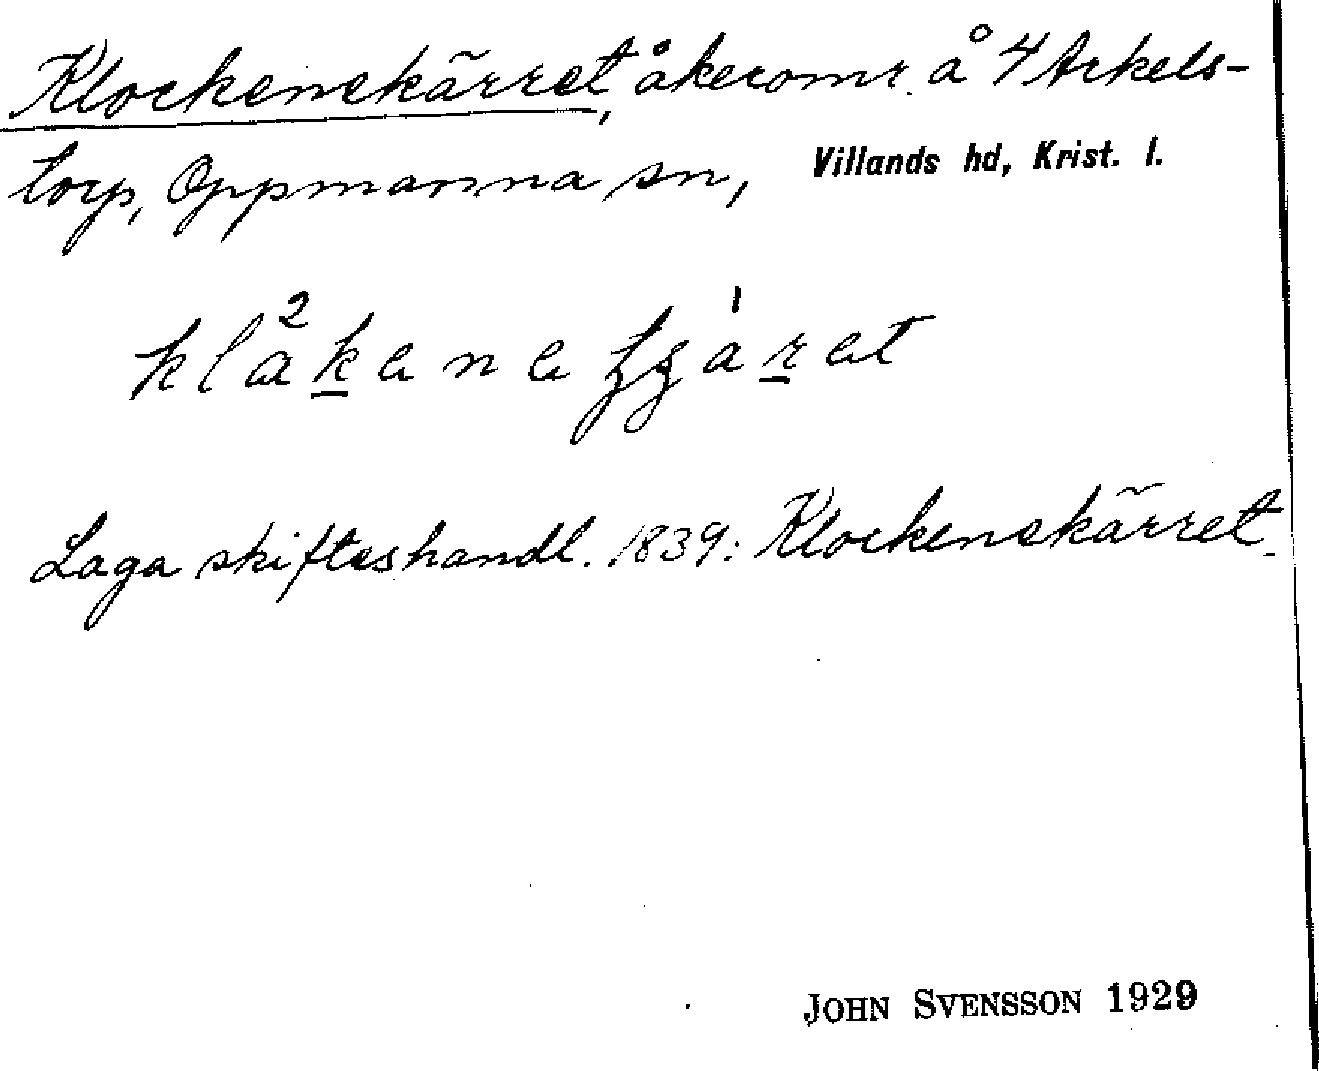 Klockenekärret, åkeromr. å 4 Arkels-
torp, Oppmanna sn, Villands hd, Krist. l.
Laga skifteshandl. 1839: Klockenekärret.
JOHN SVENSSON 1929